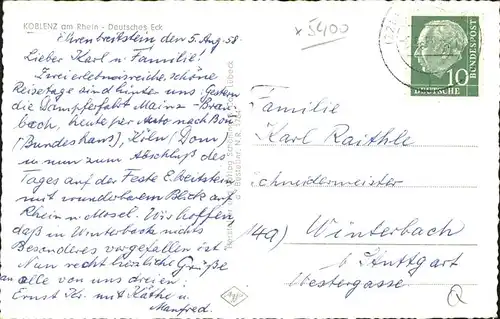 KOBLENZ am Rhein - Deutsches Eck
Ehrenbreitstein den 5. Aug. 58.
Lieber Karl u. Familie!
Zwei erlebnisreiche, schöne
Reisetage sind hinter uns. Gestern
die Dampferfahrt Mainz - Brau-
bach, heute per Auto nach Bonn
(Bundeshaus), Köln (Dom)
u. nun zum Abschluß des
Tages auf der Feste E.breitstein
mit wunderbarem Blick auf
Rhein u. Mosel. Wir hoffen,
daß in Winterbach nichts
Besonderes vorgefallen ist.
Nun recht herzliche Grüße
an alle von uns dreien:
Ernst Kr. mit Käthe u.
Manfred.
x 5400
DEUTSCHE BUNDESPOST
10
Familie
Karl Raithle
Schneidermeister
(14a) Winterbach
b. Stuttgart
Westergasse